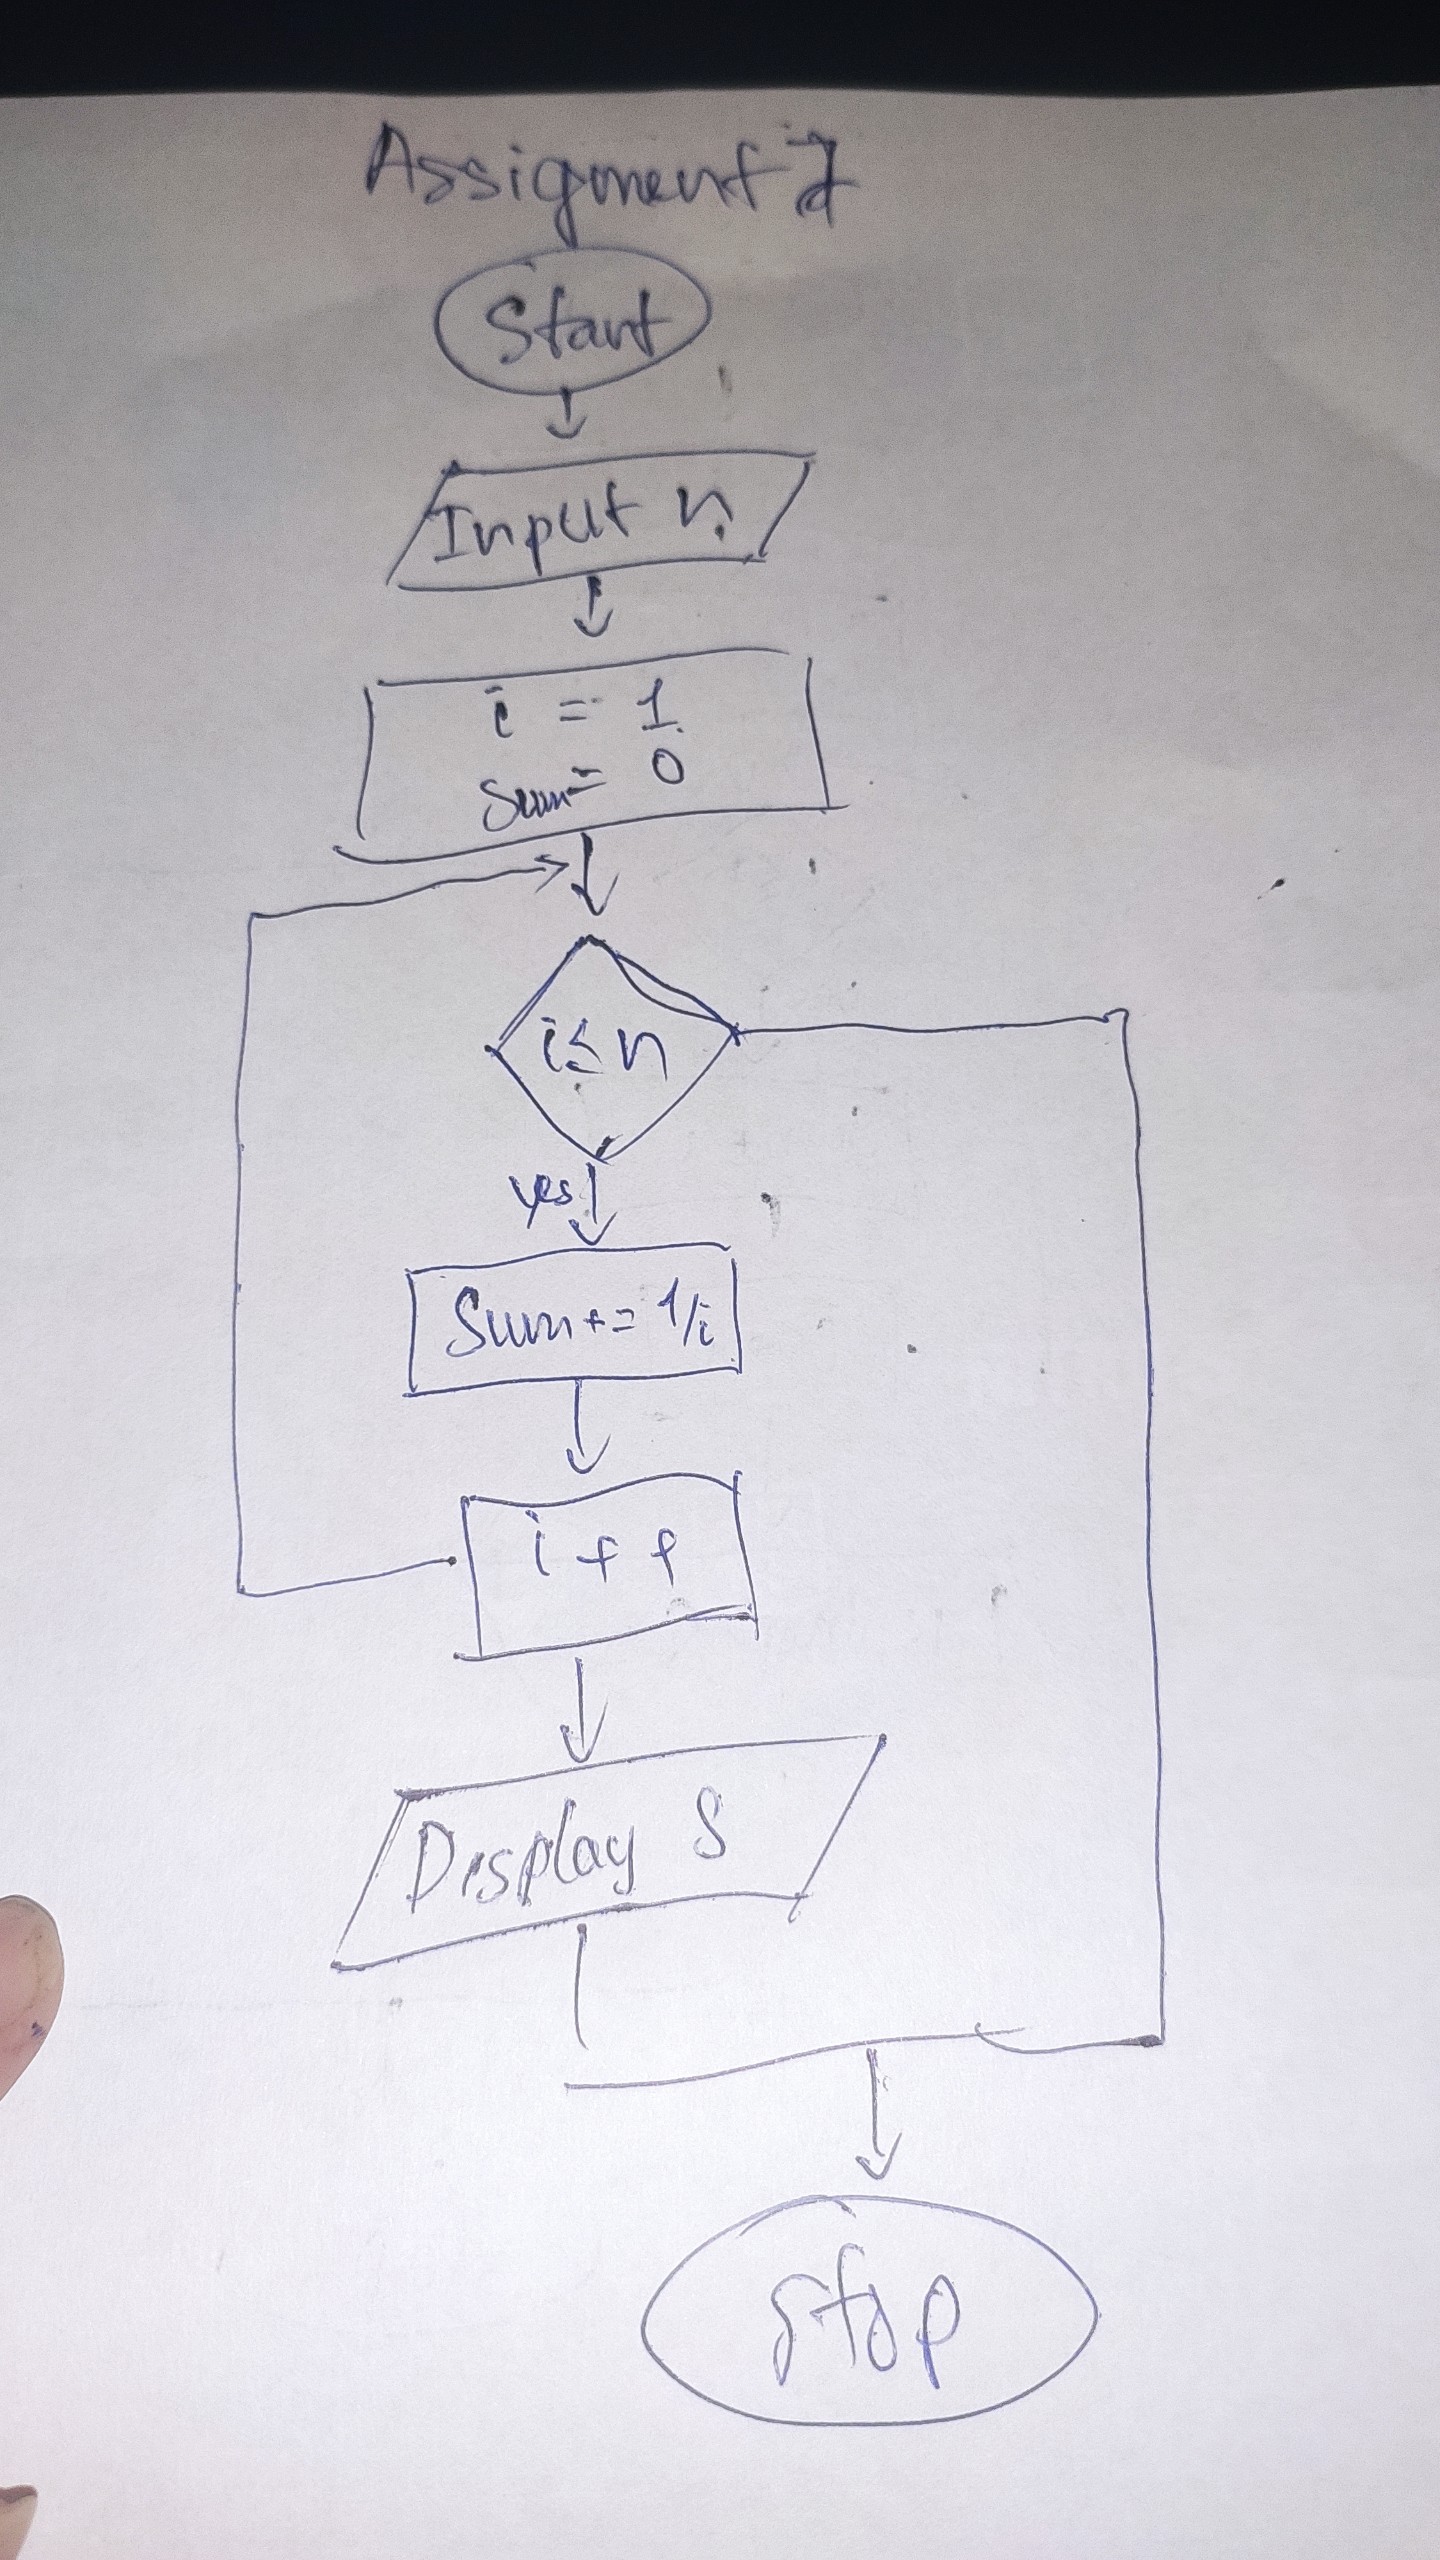 Assignment
Start
Input n
i = 1
Sum = 0
i ≤ n
yes
Sum += 1/i
i++
Display S
Stop